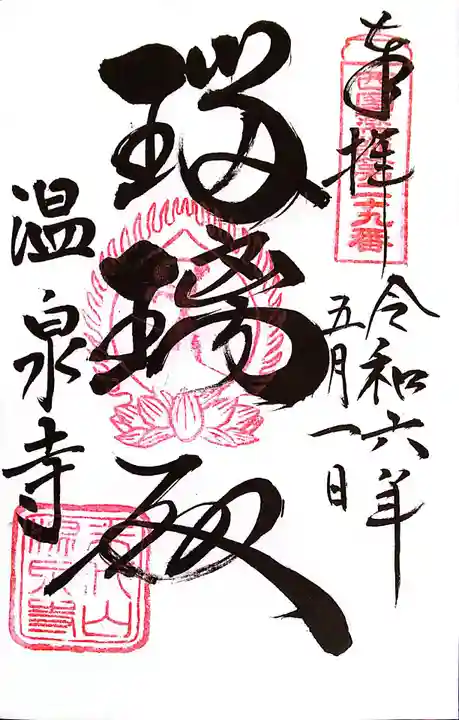 奉拝
西国薬師第二十九番
令和六年
五月一日
瑠璃殿
温泉寺